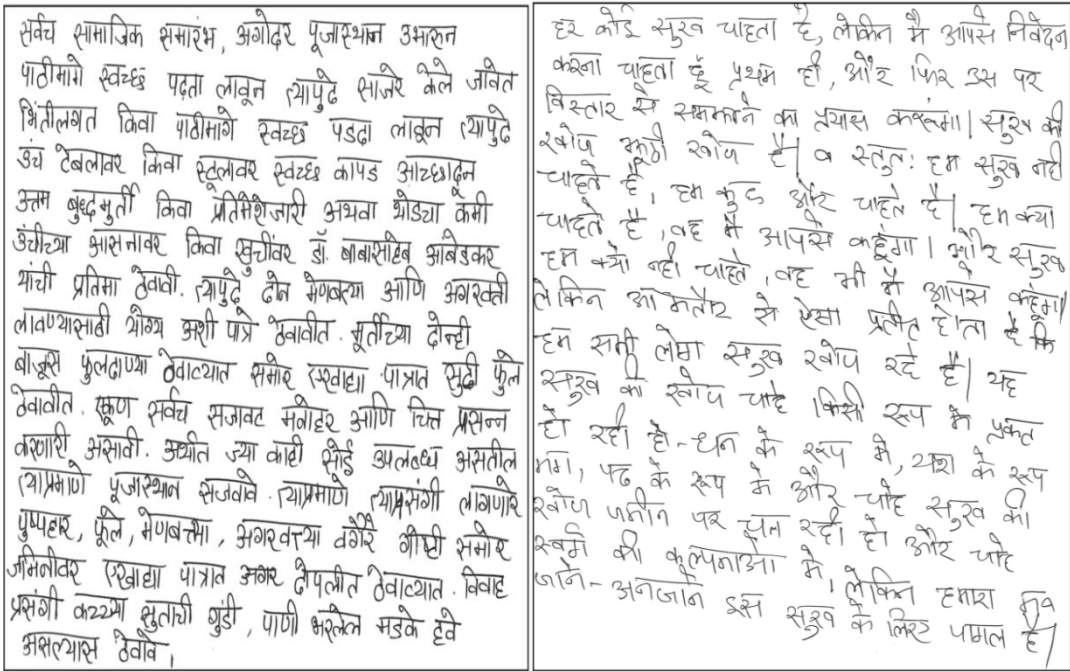 सर्वच सामाजिक समारंभ, अगोदर पूजास्थान उभारुन
पाठीमागे स्वच्छ पढ़ता लावून त्यापुढे साजेरे केले जावेत
भिंतीलगत किवा पाठीमागे स्वच्छ पडदा लावून त्यापुढे
उंच टेबलावर किवा स्टूलावर स्वच्छ कापड आच्छादून
उत्तम बुध्दमुर्ती किवा प्रतिमेशेजारी अथवा थोडया कमी
उंचीच्या आसनावर किवा खुर्चीवर डॉ. बाबासाहेब आंबेडकर
यांची प्रतिमा ठेवावी. त्यापुढे दोन मेणबत्या आणि अगरबत्ती
लावण्यासाठी योग्य अशी पात्रे ठेवावीत. मूर्तीच्या दोन्ही
बाजूस फुलदाण्या ठेवाव्यात समोर एखाद्या पात्रात सुटी फुले
ठेवावीत. एकूण सर्वच सजावट मनोहर आणि चित्त प्रसन्न
करणारी असावी. अर्थात ज्या काही सोई उपलब्ध असतील
त्याप्रमाणे पूजास्थान सजवावे. त्याप्रमाणे त्याप्रसंगी लागणारे
पुष्पहार, फूले, मेणबत्त्या, अगरबत्त्या वगैरे गोष्टी समोर
जमिनीवर एखाद्या पात्रात अगर टोपलीत ठेवाव्यात. विवाह
प्रसंगी कच्च्या सुताची गुंडी, पाणी भरलेले मडके हवे
असल्यास ठेवावे,
हर कोई सुख चाहता है, लेकिन मै आपसे निवेदन
करना चाहता हूं प्रथम ही, और फिर उस पर
विस्तार से समझाने का प्रयास करूंगा। सुख की
खोज झूठी खोज है। व स्तुतः हम सुख नही
चाहते है, हम कुछ और चाहते है। हम क्या
चाहते है, वह मै आपसे कहूंगा। और सुख
हम क्यो नही चाहते, वह भी मै आपसे कहूंगा।
लेकिन आमतौर से ऐसा प्रतीत होता है कि
हम सभी लोग सुख खोज रहे है। यह
सुख की खोज चाहे किसी रूप मे प्रकट
हो रही हो-धन के रूप मे, यश के रूप
मम, पद के रूप मे और चाहे सुख की
खोज जमीन पर चल रही हो और चाहे
स्वर्ग की कल्पनाओ मे, लेकिन हमारा मन
जाने-अनजाने इस सुख के लिए पागल है।